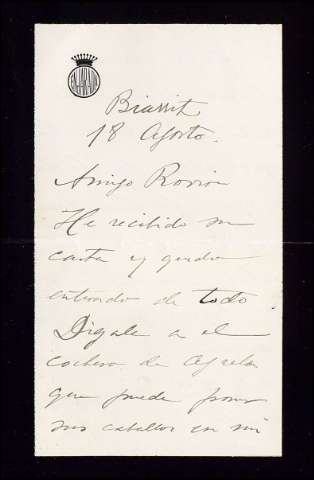 Biarritz
18 Agosto.
Amigo
He recibido su
carta y quedo
enterado de todo.
Digale a el
cochero de
que puede poner
sus caballos en mi